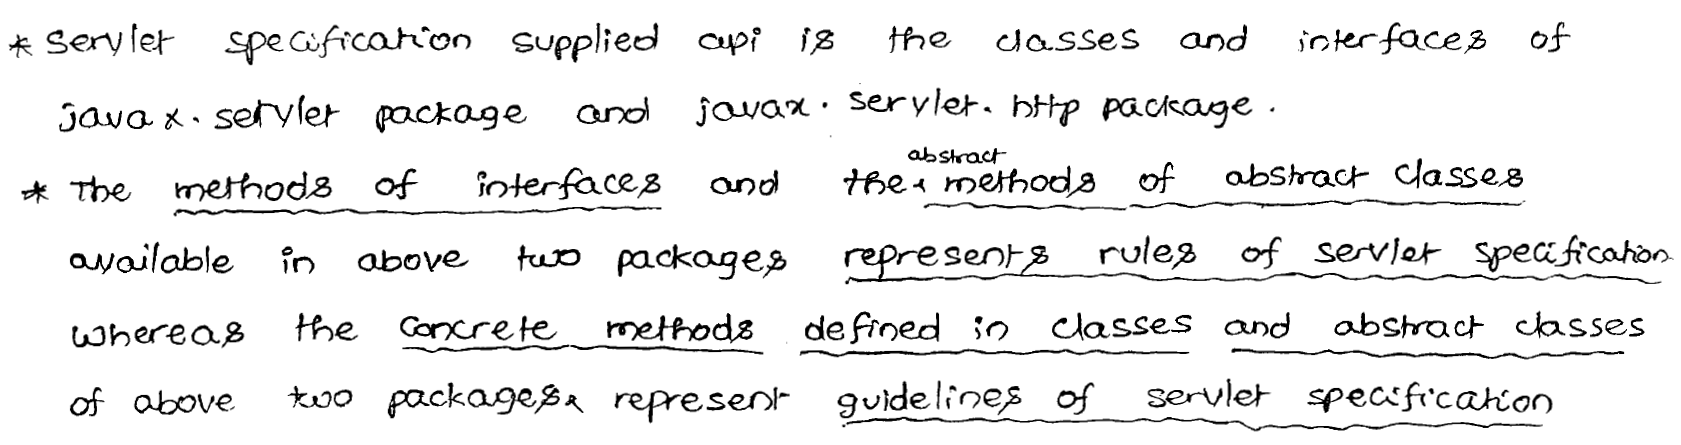 * Servlet specification supplied api is the classes and interfaces of
javax.servlet package and javax.servlet.http package.
* The methods of interfaces and the abstract methods of abstract classes
available in above two packages represents rules of servlet specification
whereas the concrete methods defined in classes and abstract classes
of above two packages represent guidelines of servlet specification